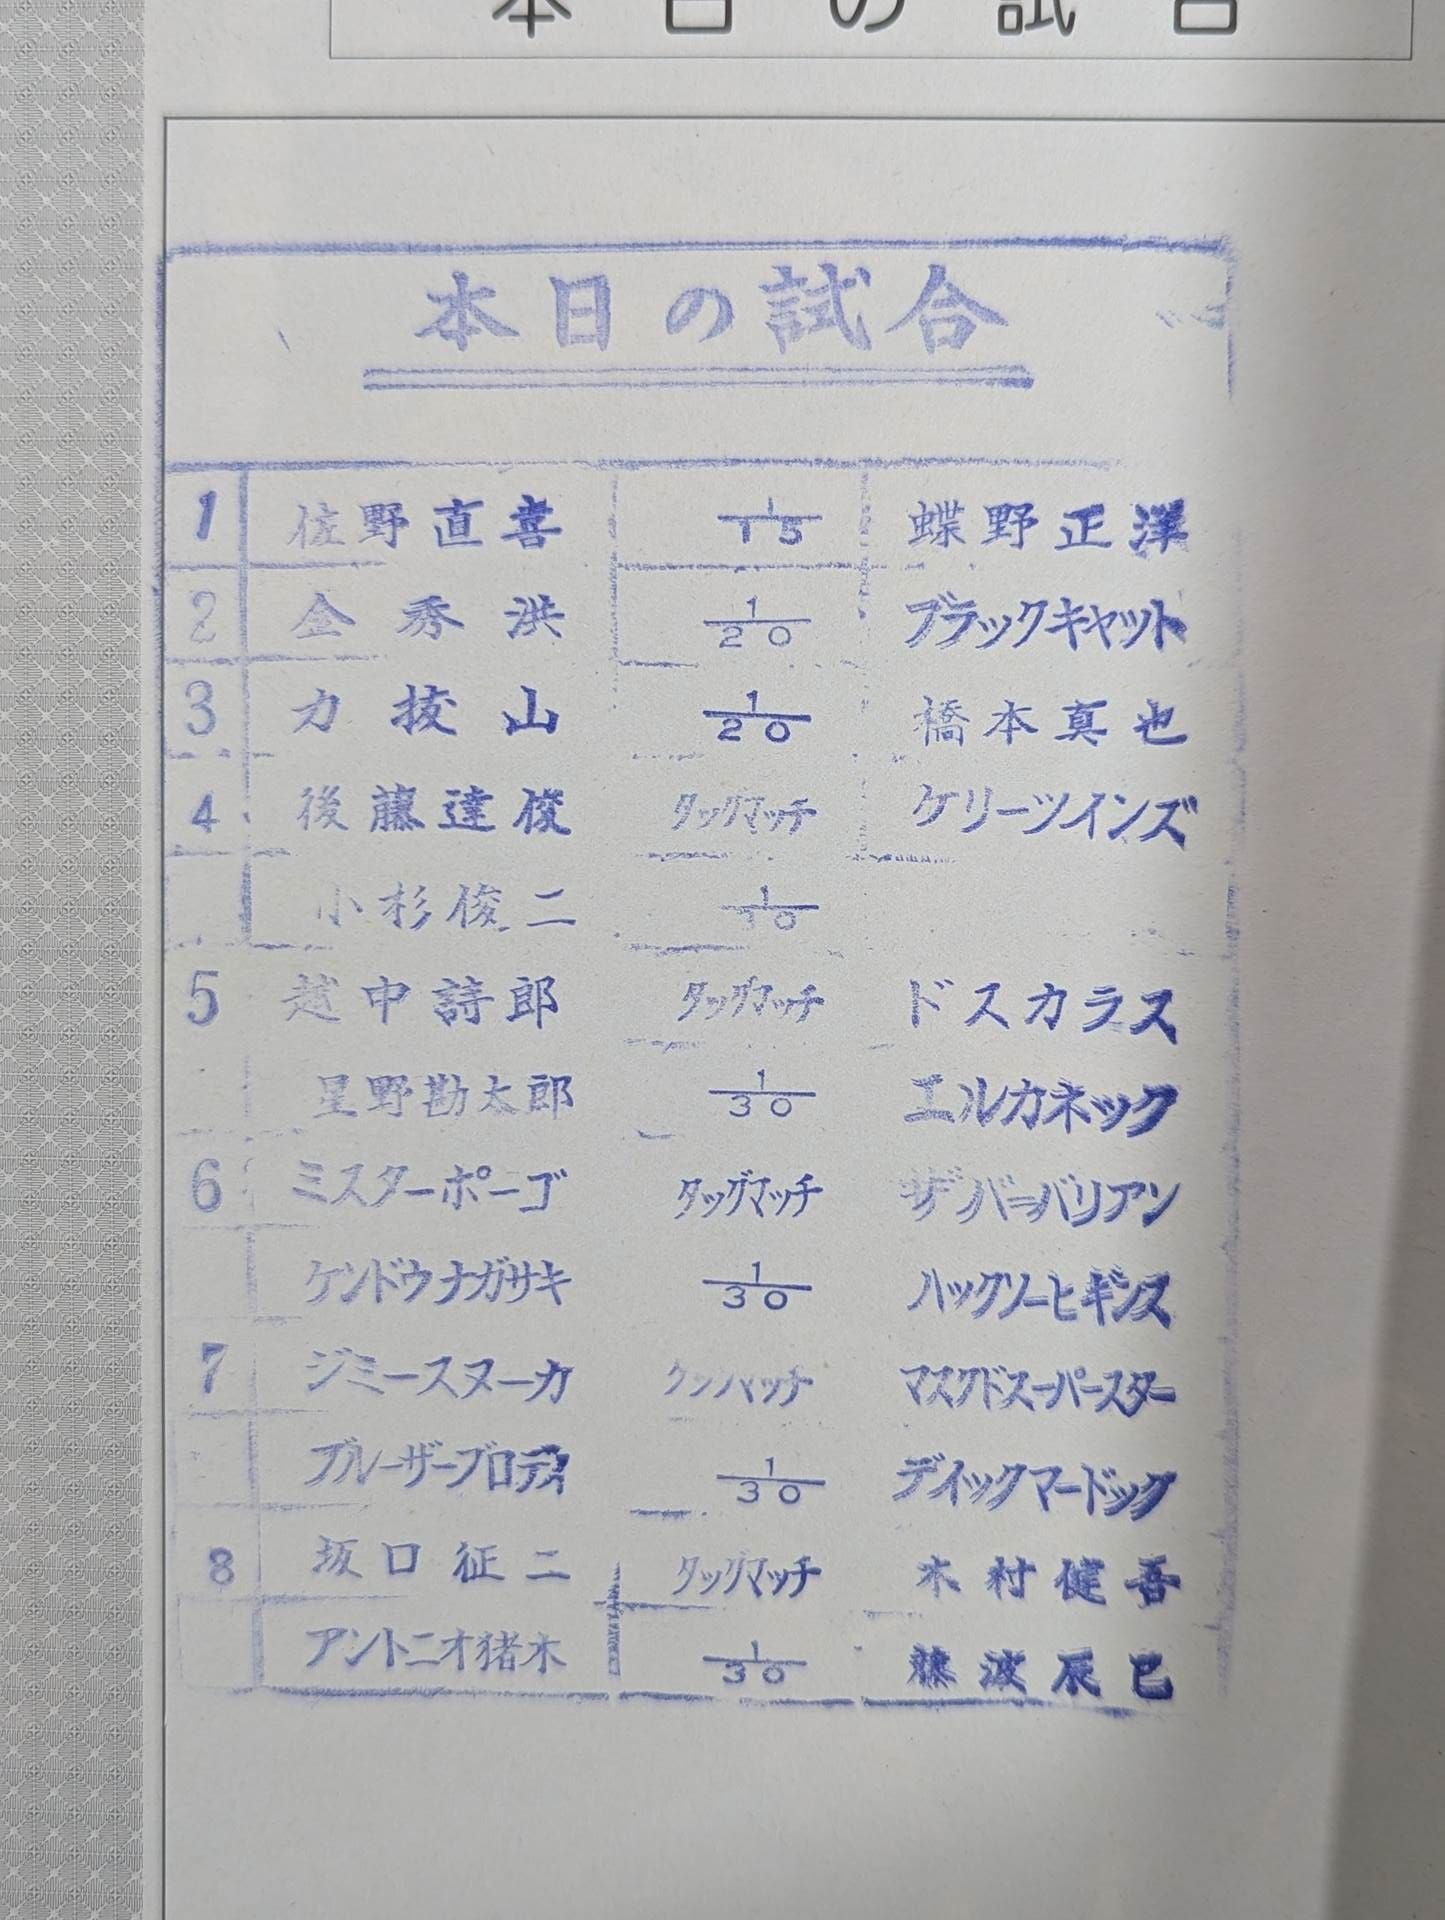 本日の試合
本日の試合
1 佐野直喜 1/15 蝶野正洋
2 金秀洪 1/20 ブラックキャット
3 力抜山 1/20 橋本真也
4 後藤達俊 タッグマッチ ケリーツインズ
小杉俊二 1/30
5 越中詩郎 タッグマッチ ドスカラス
星野勘太郎 1/30 エルカネック
6 ミスターポーゴ タッグマッチ ザ・バーバリアン
ケンドウナガサキ 1/30 ハックソーヒギンス
7 ジミースヌーカ タッグマッチ マスクドスーパースター
ブルーザーブロディ 1/30 デイックマードック
8 坂口征二 タッグマッチ 木村健吾
アントニオ猪木 1/30 藤波辰巳